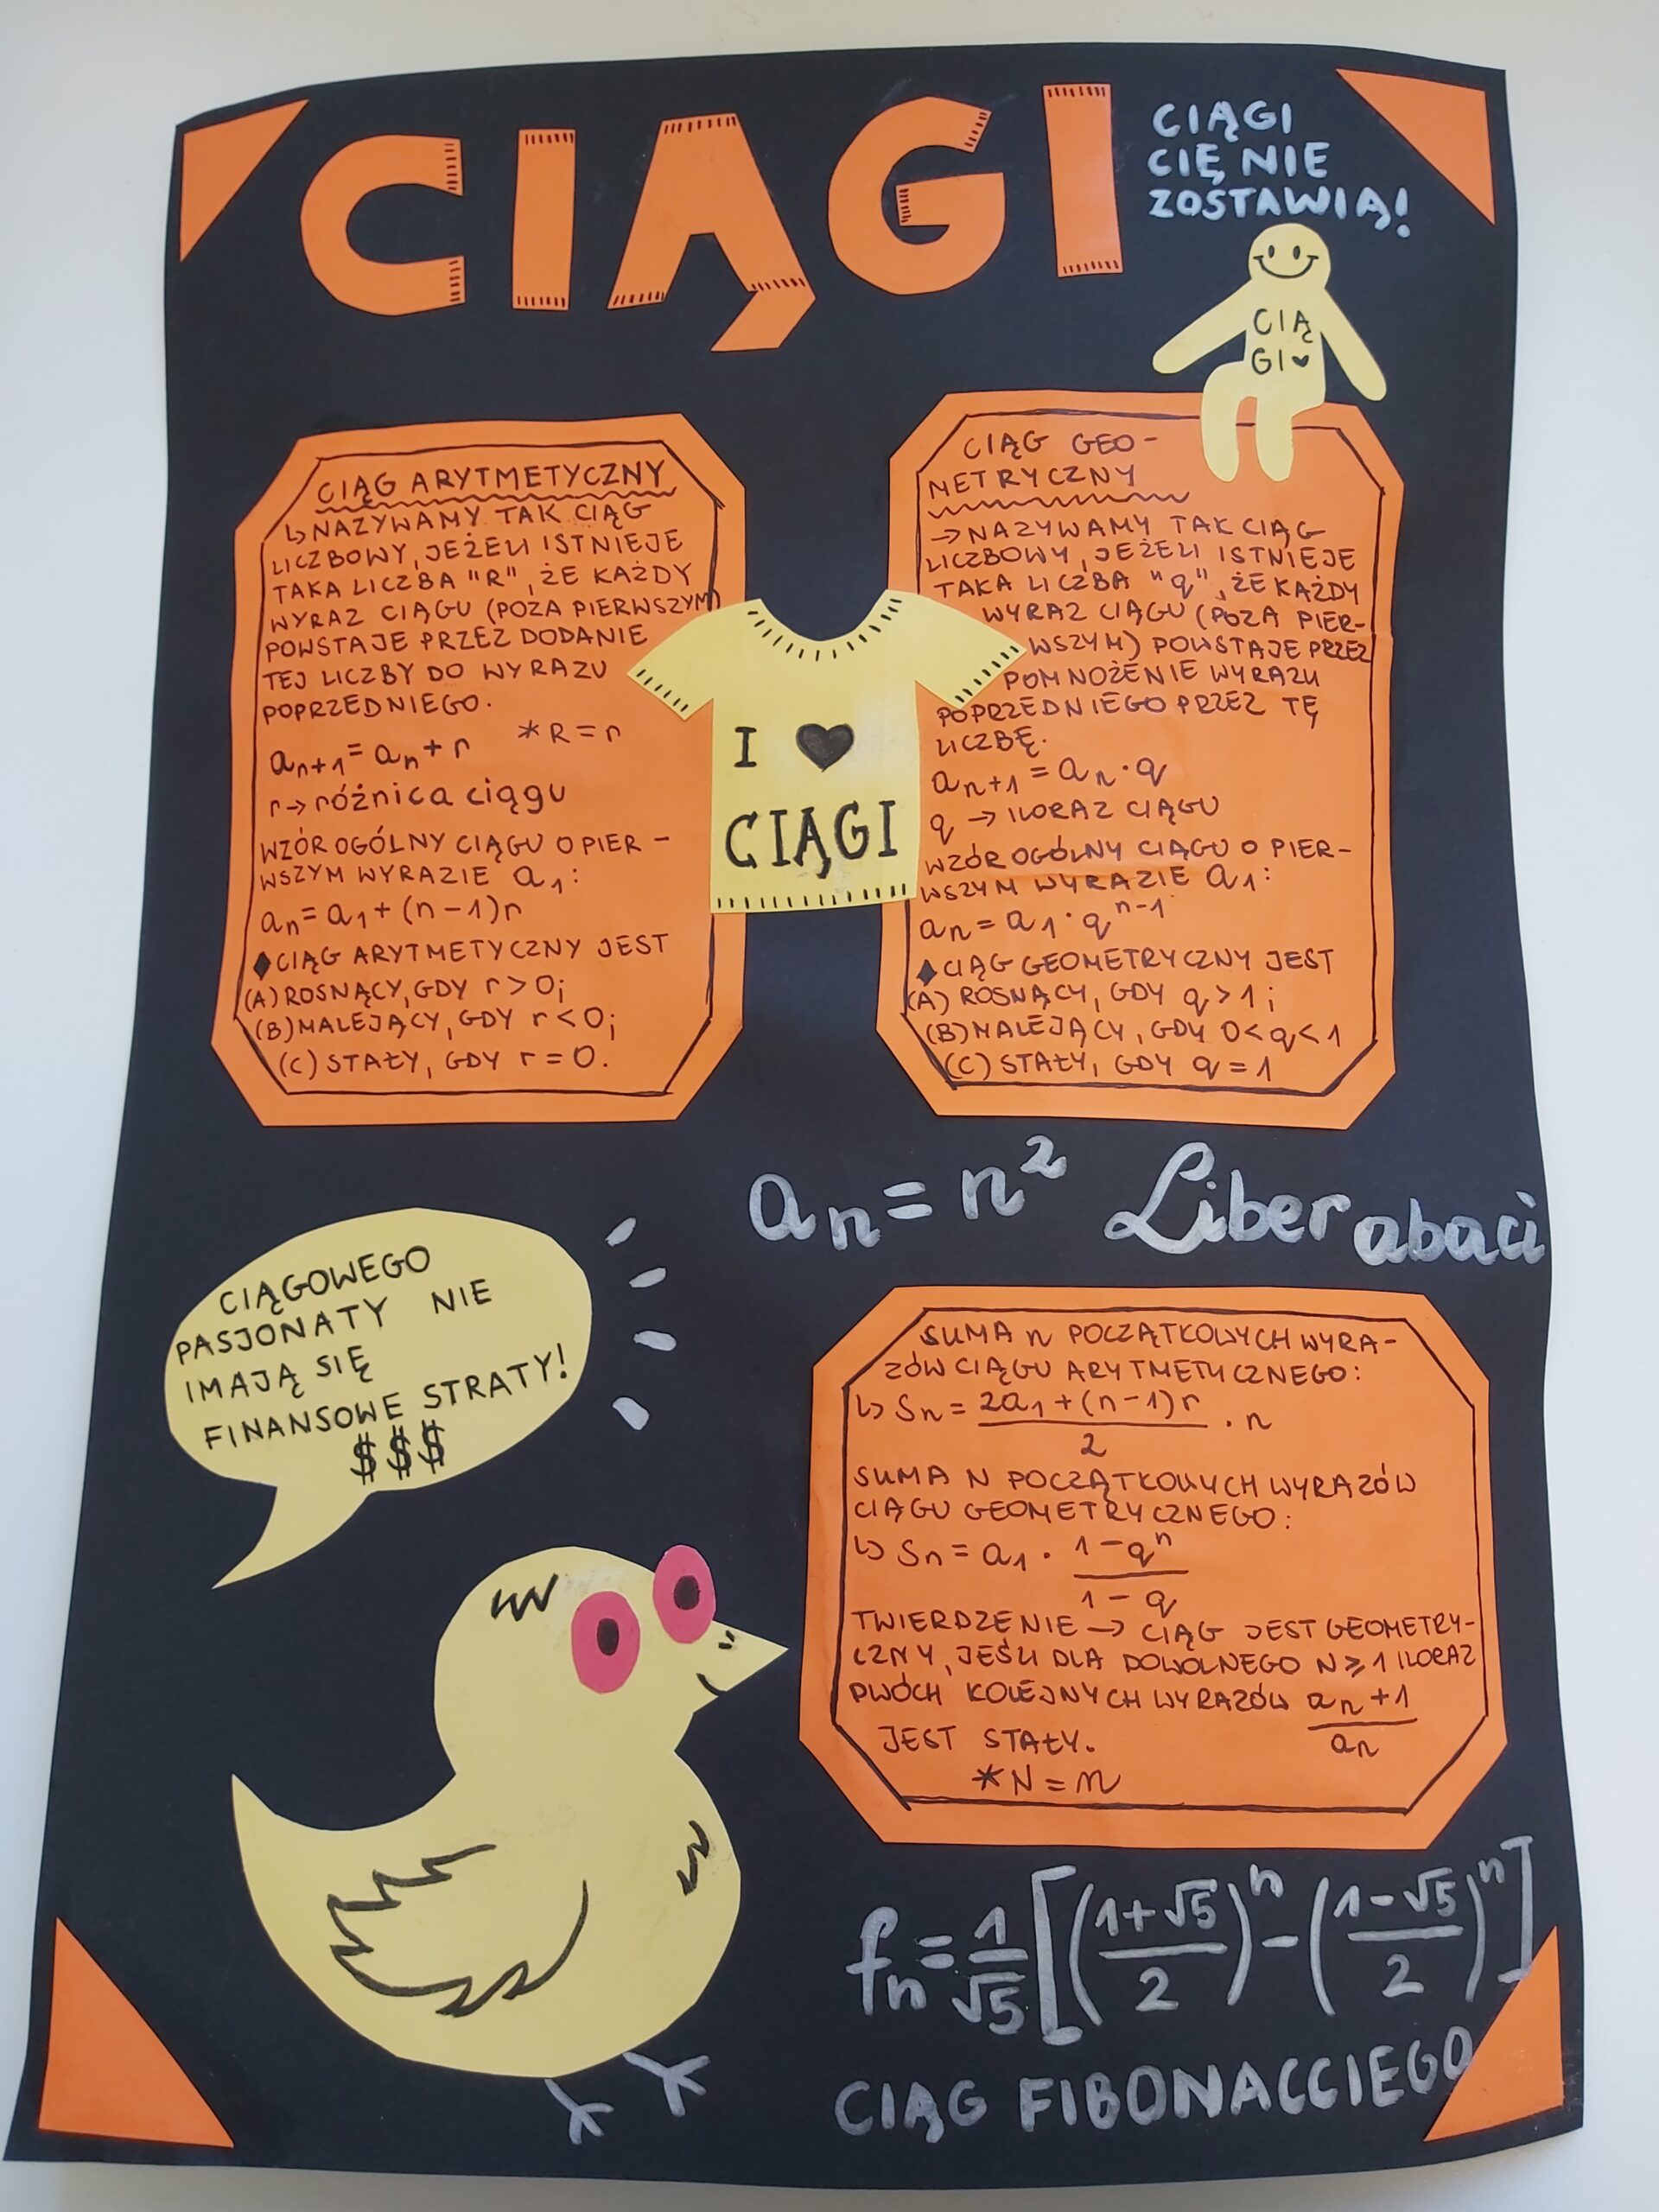 CIĄGI
CIĄGI
CIĘ NIE
ZOSTAWIĄ!
CIĄ
GI♥
CIĄG ARYTMETYCZNY
↳ NAZYWAMY TAK CIĄG
LICZBOWY, JEŻELI ISTNIEJE
TAKA LICZBA "R", ŻE KAŻDY
WYRAZ CIĄGU (POZA PIERWSZYM)
POWSTAJE PRZEZ DODANIE
TEJ LICZBY DO WYRAZU
POPRZEDNIEGO.
*R=r
aₙ₊₁=aₙ+r
r→różnica ciągu
WZÓR OGÓLNY CIĄGU O PIER-
WSZYM WYRAZIE a₁:
aₙ=a₁+(n-1)r
♦CIĄG ARYTMETYCZNY JEST
(A) ROSNĄCY, GDY r>0;
(B) MALEJĄCY, GDY r<0;
(C) STAŁY, GDY r=0.
I ♥
CIĄGI
CIĄG GEO-
METRYCZNY
→NAZYWAMY TAK CIĄG
LICZBOWY, JEŻELI ISTNIEJE
TAKA LICZBA "q", ŻE KAŻDY
WYRAZ CIĄGU (POZA PIER-
WSZYM) POWSTAJE PRZEZ
POMNOŻENIE WYRAZU
POPRZEDNIEGO PRZEZ TĘ
LICZBĘ.
aₙ₊₁=aₙ·q
q→ILORAZ CIĄGU
WZÓR OGÓLNY CIĄGU O PIER-
WSZYM WYRAZIE a₁:
aₙ=a₁·qⁿ⁻¹
♦CIĄG GEOMETRYCZNY JEST
(A) ROSNĄCY, GDY q>1;
(B) MALEJĄCY, GDY 0<q<1
(C) STAŁY, GDY q=1
aₙ=n² Liber abaci
CIĄGOWEGO
PASJONATY NIE
IMAJĄ SIĘ
FINANSOWE STRATY!
$$$
SUMA n POCZĄTKOWYCH WYRA-
ZÓW CIĄGU ARYTMETYCZNEGO:
↳ Sₙ = (2a₁+(n-1)r)/2 · n
SUMA N POCZĄTKOWYCH WYRAZÓW
CIĄGU GEOMETRYCZNEGO:
↳ Sₙ = a₁ · (1-qⁿ)/(1-q)
TWIERDZENIE → CIĄG JEST GEOMETRY-
CZNY, JEŚLI DLA DOWOLNEGO N⩾1 ILORAZ
DWÓCH KOLEJNYCH WYRAZÓW (aₙ+1)/aₙ
JEST STAŁY.
*N=n
fₙ=1/√5[((1+√5)/2)ⁿ-((1-√5)/2)ⁿ]
CIĄG FIBONACCIEGO